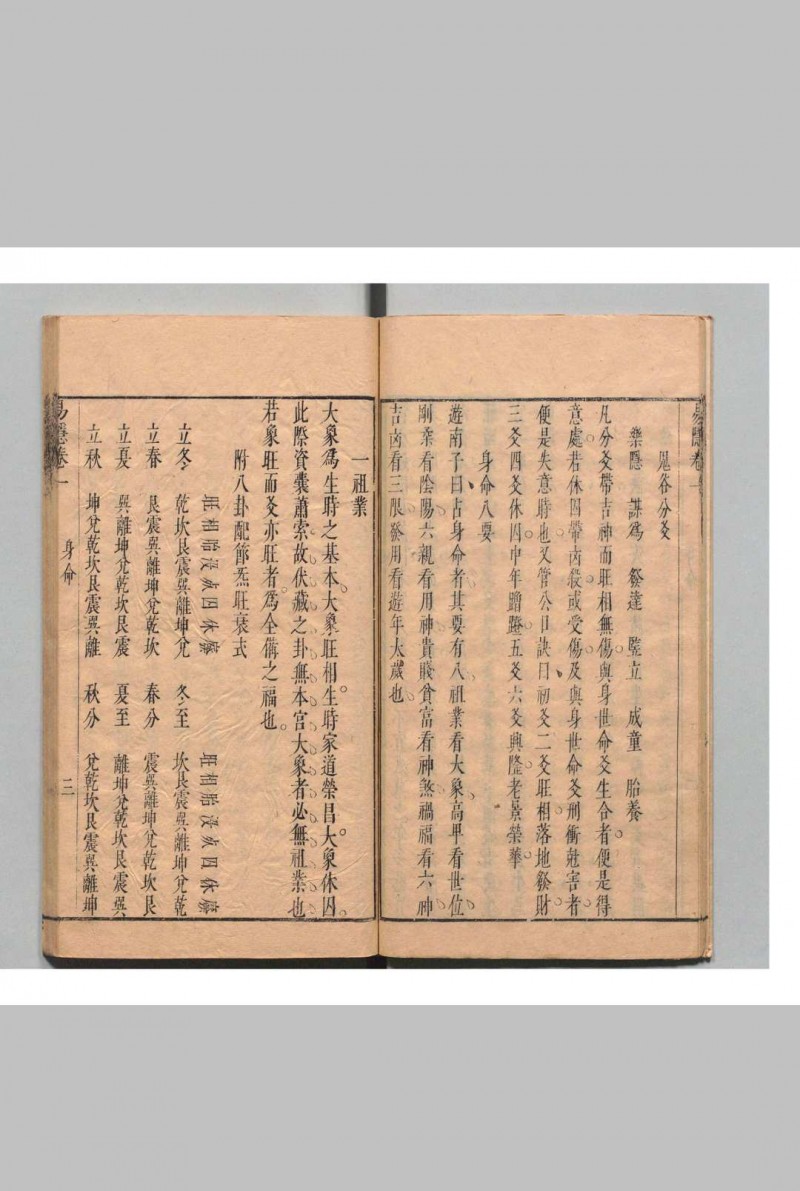 易隱卷一
鬼谷分爻
樂隱　謀為　發達　豎立　成童　胎養
凡分爻帶吉神而旺相無傷與身世命爻生合者便是得
意處若休囚帶凶殺或受傷及與身世命爻刑衝尅害者
便是失意時也又管公口訣曰初爻二爻旺相落地發財
三爻四爻休囚中年蹭蹬五爻六爻興隆老景榮華
身命八要
遊南子曰占身命者其要有八祖業看大象高卑看世位
剛柔看陰陽六親看用神貴賤貧富看神煞禍福看六神
吉凶看三限發用看遊年大歲也
一祖業
大象為生時之基本大象旺相生時家道榮昌大象休囚
此際資囊蕭索故伏藏之卦無本宮大象者必無祖業也
若象旺而爻亦旺者為全備之福也
附八卦配節炁旺衰式
旺相胎沒死囚休廢　旺相胎沒死囚休廢
立冬　乾坎艮震巽離坤兌　冬至　坎艮震巽離坤兌乾
立春　艮震巽離坤兌乾坎　春分　震巽離坤兌乾坎艮
立夏　巽離坤兌乾坎艮震　夏至　離坤兌乾坎艮震巽
立秋　坤兌乾坎艮震巽離　秋分　兌乾坎艮震巽離坤
易隱卷一　身命　三